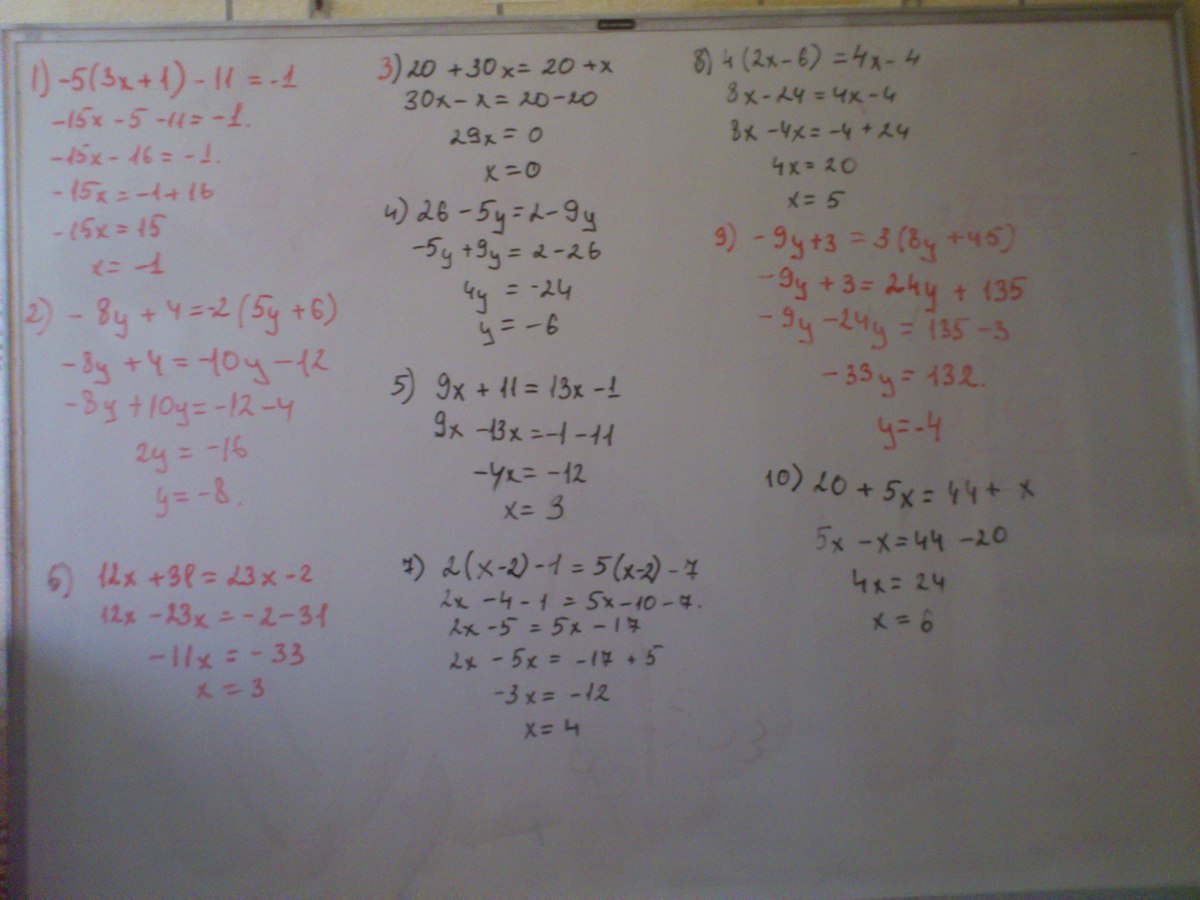 1) -5(3x+1) - 11 = -1
-15x - 5 - 11 = -1.
-15x - 16 = -1.
-15x = -1 + 16
-15x = 15
x = -1
2) - 8y + 4 = -2 (5y + 6)
-8y + 4 = -10y - 12
-8y + 10y = -12 - 4
2y = -16
y = -8.
6) 12x + 31 = 23x - 2
12x - 23x = -2 - 31
-11x = -33
x = 3
3) 20 + 30x = 20 + x
30x - x = 20 - 20
29x = 0
x = 0
4) 26 - 5y = 2 - 9y
-5y + 9y = 2 - 26
4y = -24
y = -6
5) 9x + 11 = 13x - 1
9x - 13x = -1 - 11
-4x = -12
x = 3
7) 2(x-2) - 1 = 5(x-2) - 7
2x - 4 - 1 = 5x - 10 - 7.
2x - 5 = 5x - 17
2x - 5x = -17 + 5
-3x = -12
x = 4
8) 4(2x - 6) = 4x - 4
8x - 24 = 4x - 4
8x - 4x = -4 + 24
4x = 20
x = 5
9) - 9y + 3 = 3(8y + 45)
-9y + 3 = 24y + 135
-9y - 24y = 135 - 3
-33y = 132.
y = -4
10) 20 + 5x = 44 + x
5x - x = 44 - 20
4x = 24
x = 6